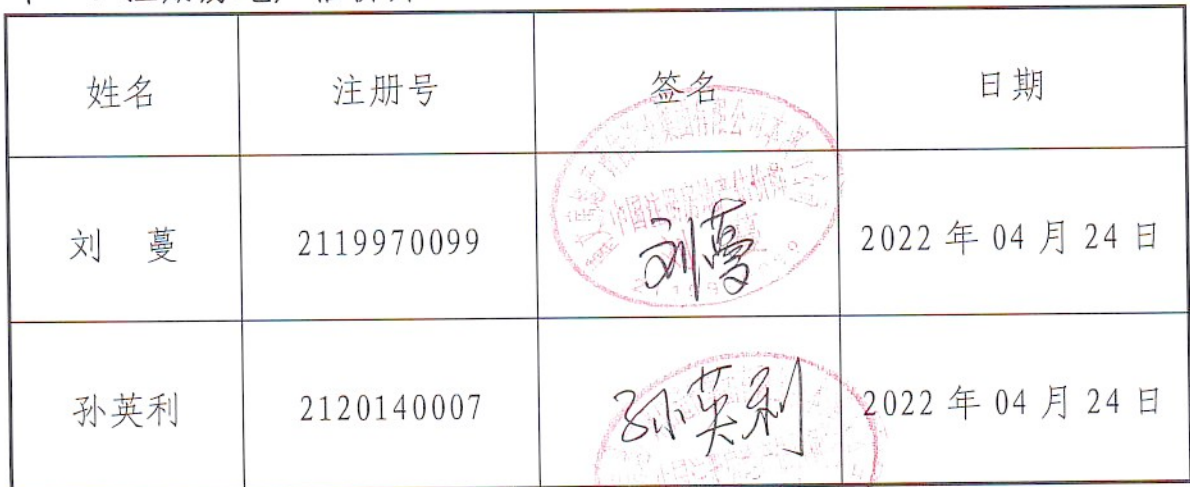 姓名 注册号 签名 日期
刘 蔓 2119970099 刘蔓 2022 年 04 月 24 日
孙英利 2120140007 孙英利 2022 年 04 月 24 日